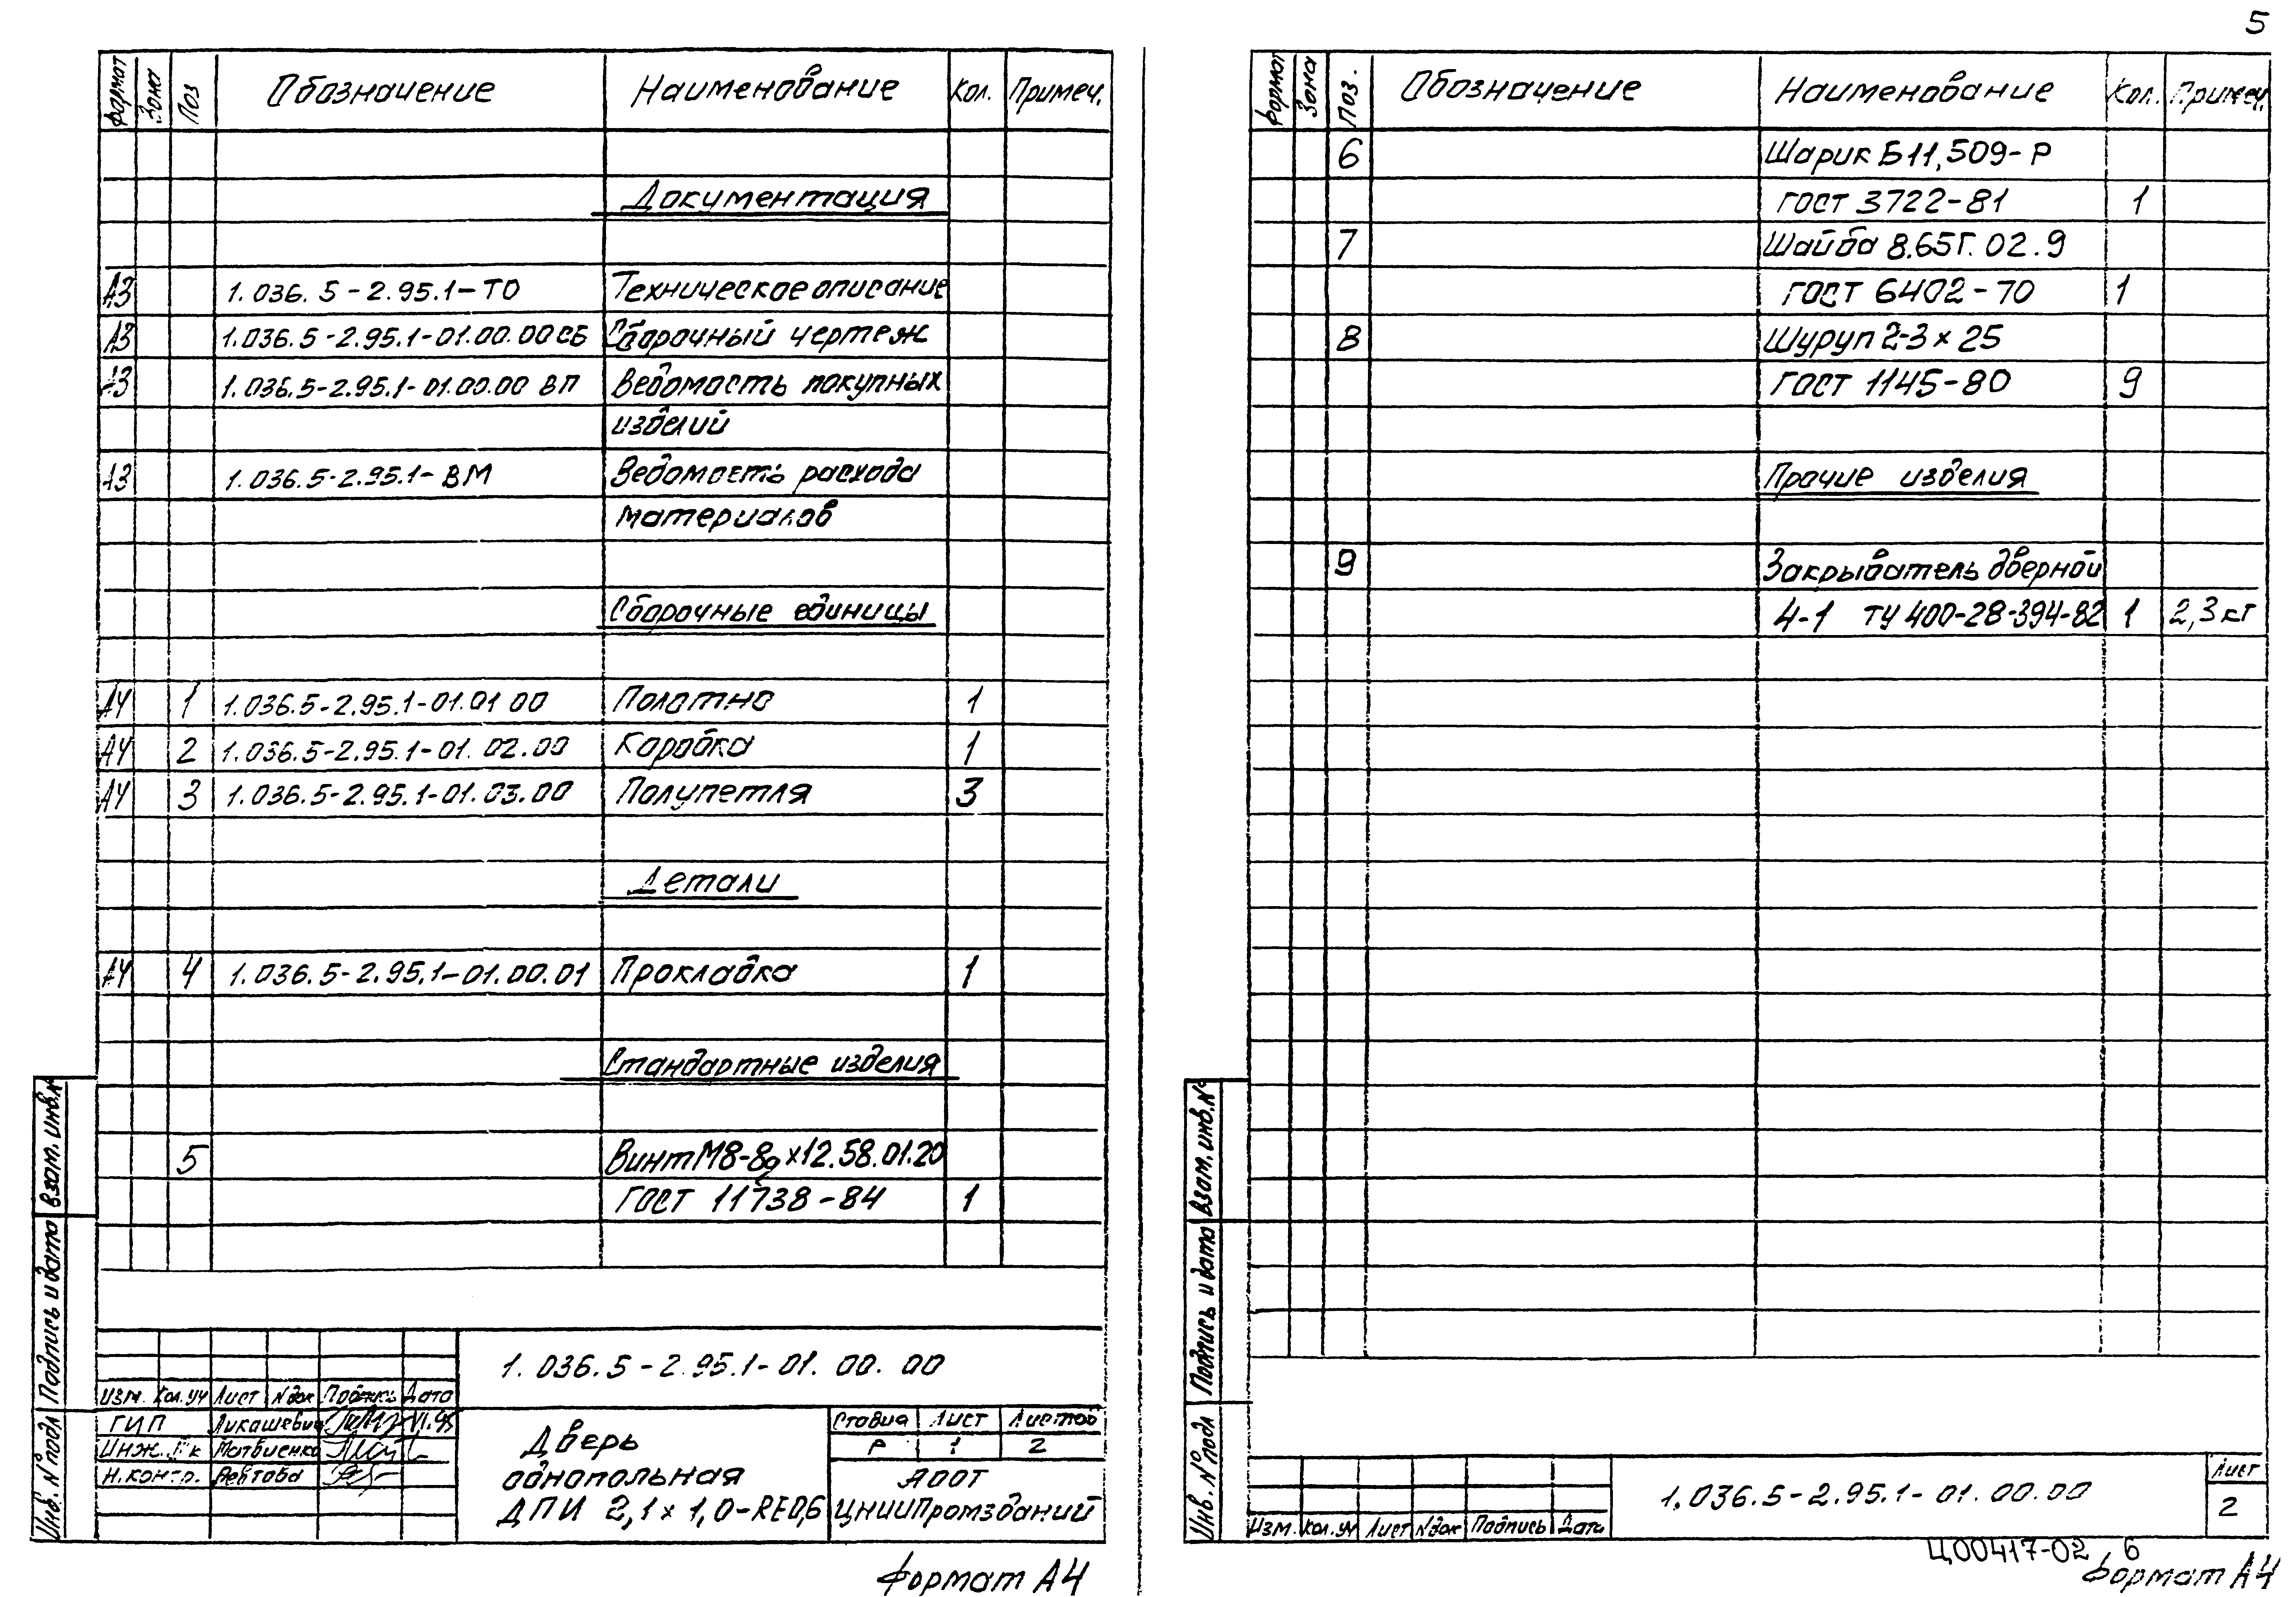 5
Формат Зона Поз Обозначение Наименование Кол. Примеч.
Документация
А3 1.036.5-2.95.1-ТО Техническое описание
А3 1.036.5-2.95.1-01.00.00СБ Сборочный чертеж
А3 1.036.5-2.95.1-01.00.00 ВП Ведомость покупных
изделий
А3 1.036.5-2.95.1-ВМ Ведомость расхода
материалов
Сборочные единицы
А4 1 1.036.5-2.95.1-01.01 00 Полотно 1
А4 2 1.036.5-2.95.1-01.02.00 Коробка 1
А4 3 1.036.5-2.95.1-01.03.00 Полупетля 3
Детали
А4 4 1.036.5-2.95.1-01.00.01 Прокладка 1
Стандартные изделия
5 Винт М8-8g×12.58.01.20
ГОСТ 11738-84 1
1.036.5-2.95.1-01.00.00
Изм. Кол.уч Лист Nдок Подпись Дата
ГИП Лукашевич VI.95
Инж. IIк Матвиенко
Н.контр.
Дверь
однопольная
ДПИ 2,1×1,0-RE0,6
Стадия Лист Листов
Р 1 2
АООТ
ЦНИИПромзданий
Инв. №подл Подпись и дата Взам. инв.№
Формат А4
Формат Зона Поз. Обозначение Наименование Кол. Примеч.
6 Шарик Б11,509-Р
ГОСТ 3722-81 1
7 Шайба 8.65Г.02.9
ГОСТ 6402-70 1
8 Шуруп 2-3×25
ГОСТ 1145-80 9
Прочие изделия
9 Закрыватель дверной
4-1 ТУ 400-28-394-82 1 2,3 кг
Инв. №подл Подпись и дата Взам. инв.№
Изм. Кол.уч Лист Nдок Подпись Дата
1.036.5-2.95.1-01.00.00
Лист
2
Ц00417-02 6
Формат А4